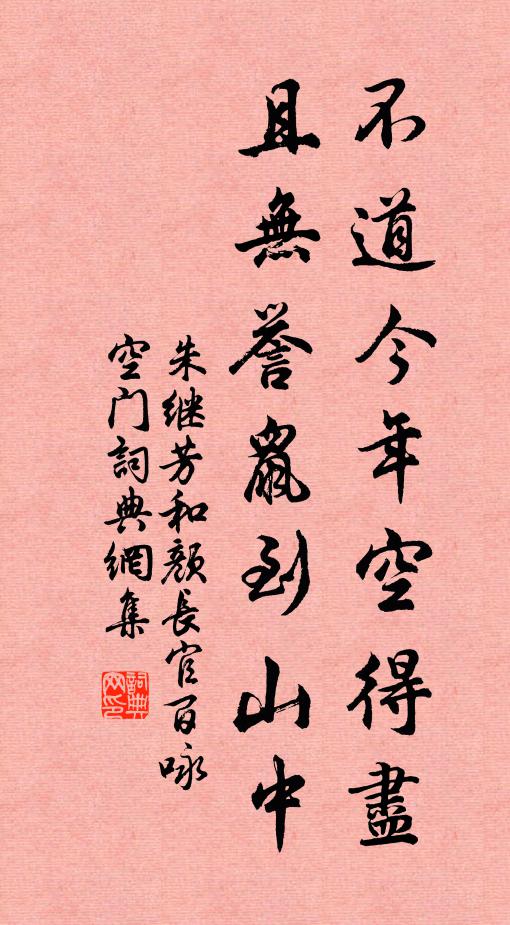 不道今年空得盡
且無誉鼠到山中
朱继芳和颜長官百咏
空门詞典網集
詞典网印